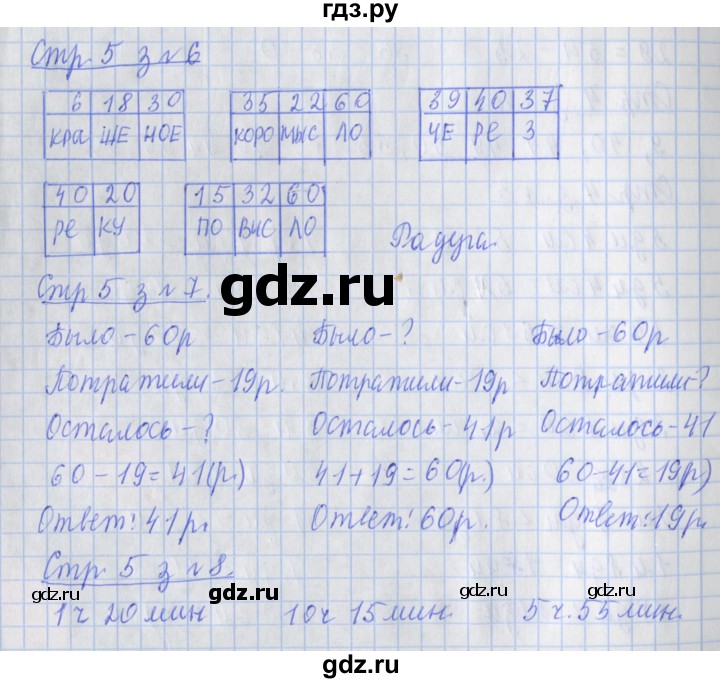 гдз.ру
Стр 5 з №6
6 18 30
КРА ШЕ НОЕ
35 22 60
КОРО МЫС ЛО
39 40 37
ЧЕ РЕ З
40 20
РЕ КУ
15 32 60
ПО ВИС ЛО
Радуга.
gdz.ru
Стр 5 з №7.
Было - 60р
Потратили - 19р.
Осталось - ?
60 - 19 = 41(р.)
Ответ: 41р.
Было - ?
Потратили - 19р
Осталось - 41р
41 + 19 = 60(р.)
Ответ: 60р.
Было - 60р
Потратили - ?
Осталось - 41
60 - 41 = 19р)
Ответ: 19р.
Стр 5 з №8.
gdz.ru gdz.ru gdz.ru gdz.ru
1ч 20 мин 10ч 15 мин. 5 ч. 55 мин.
gdz.ru